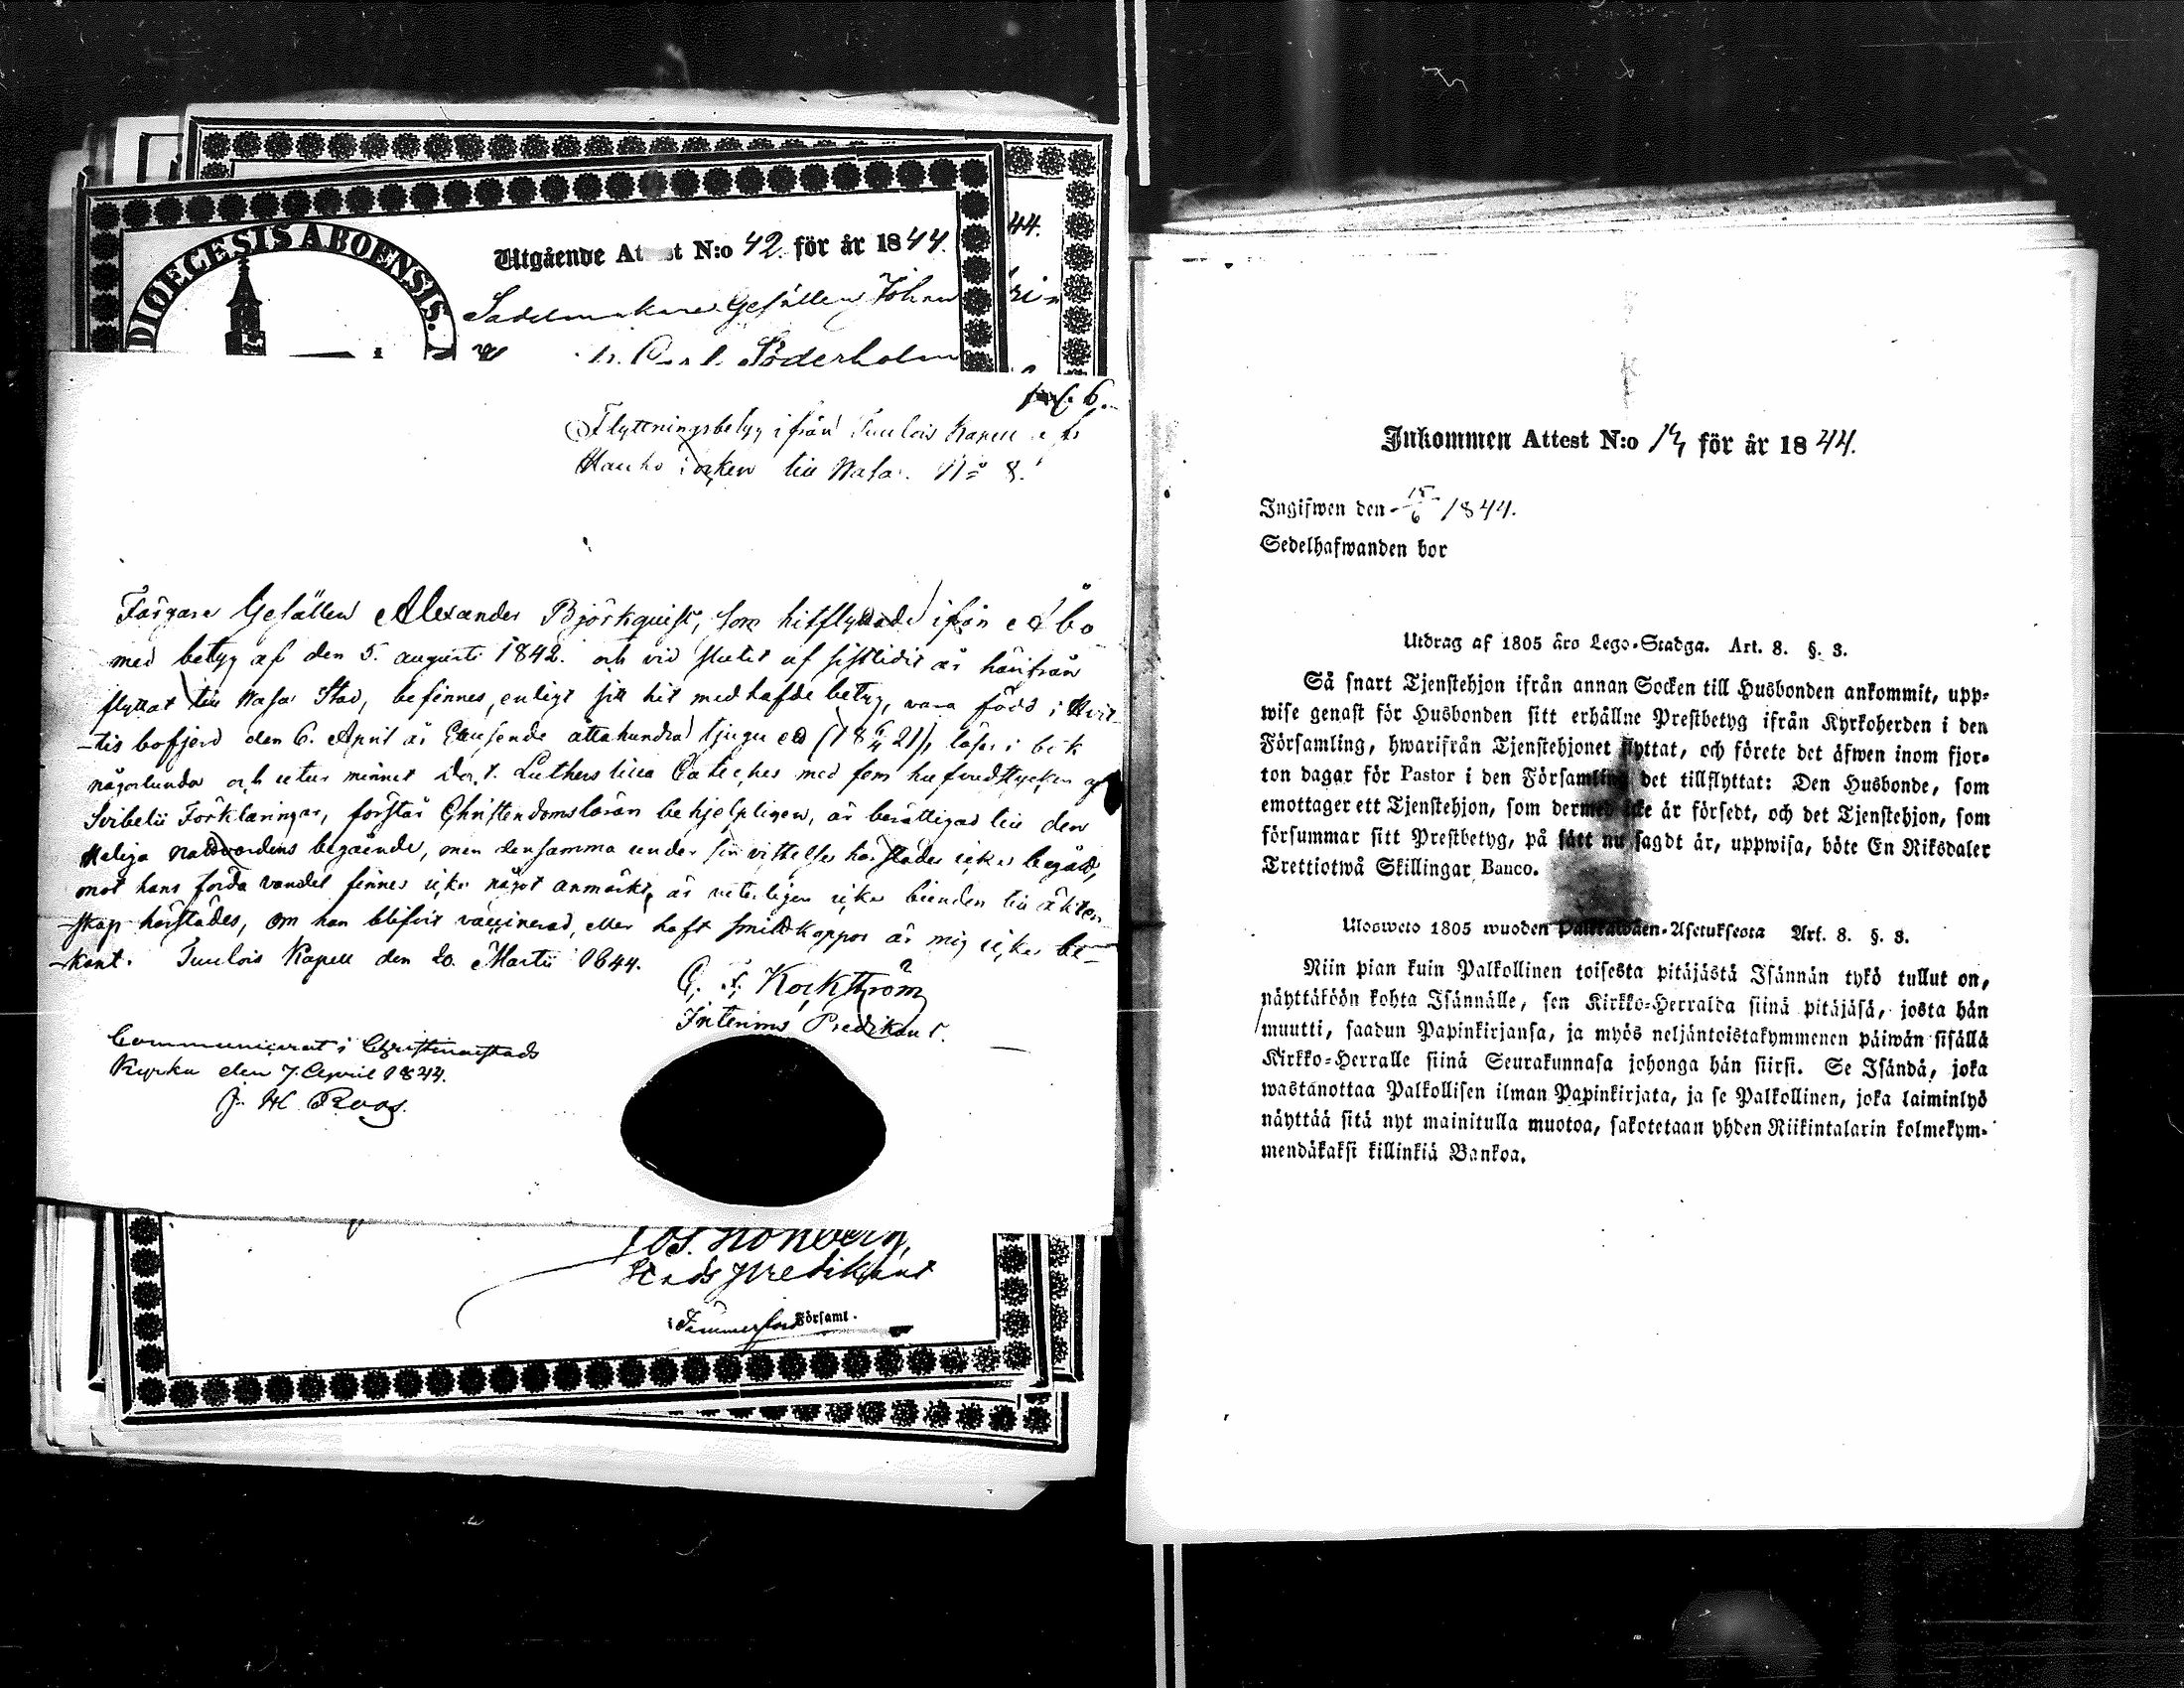 44.
DIOECESIS ABOENSIS.
Utgående Attest N:o 42. för år 1844.
Sadelmakare Gesällen Johan
Söderholm
6.
Flyttningsbetyg ifrån Tuulois Kapell af
Hauho Socken till Wasa. N:o 8.
Färgare Gesällen Alexander Björkquist, som hitflyttade ifrån Åbo
med betyg af den 5. augusti 1842. och vid slutet af sistlidit år härifrån
flyttat till Wasa Stad, befinnes, enligt sitt hit medhafde betyg, vara född i Hvit-
-tis bofjerd den 6. April år Ettusende åttahundra tjugu ett (1821), läser i bok
någorlunda och utur minnet Doct. Luthers lilla Cateches med fem hufvudstycken af
Svibelii Förklaringar, förstår Christendomsläran behjelpligen, är berättigad till den
Heliga nattvardens begående, men densamma under sin vistelse härstädes icke begått,
mot hans förda vandel finnes icke något anmärkt, är veterligen icke bunden till äkten-
-skap härstädes, om han blifvit vaccinerad, eller haft smittkoppor är mig icke be-
-kant. Tuulois Kapell den 20. Martii 1844.
Kockström
Interims Predikant.
Communicerat i Christinæstads
Kyrka den 7. April 1844.
J. H. Roos.
Stads Predikant
i Tammerfors Församl.
Inkommen Attest N:o 14 för år 1844.
Ingifwen den 15/6 1844.
Sedelhafwanden bor
Utdrag af 1805 års Lego-Stadga. Art. 8. §. 3.
Så snart Tjenstehjon ifrån annan Socken till Husbonden ankommit, upp-
wise genast för Husbonden sitt erhållne Prestbetyg ifrån Kyrkoherden i den
Församling, hwarifrån Tjenstehjonet flyttat, och förete det äfwen inom fjor-
ton dagar för Pastor i den Församling det tillflyttat: Den Husbonde, som
emottager ett Tjenstehjon, som dermed icke är försedt, och det Tjenstehjon, som
försummar sitt Prestbetyg, på sätt nu sagdt är, uppwisa, böte En Riksdaler
Trettiotwå Skillingar Banco.
Ulosweto 1805 wuoden Palkkawäen-Asetuksesta Art. 8. §. 3.
Niin pian kuin Palkollinen toisesta pitäjästä Isännän tykö tullut on,
näyttäköön kohta Isännälle, sen Kirkko-Herralda siinä pitäjäsä, josta hän
muutti, saadun Papinkirjansa, ja myös neljäntoistakymmenen päiwän sisällä
Kirkko-Herralle siinä Seurakunnasa johonga hän siirsi. Se Isändä, joka
wastanottaa Palkollisen ilman Papinkirjata, ja se Palkollinen, joka laiminlyö
näyttää sitä nyt mainitulla muotoa, sakotetaan yhden Riikintalarin kolmekym-
mendäkaksi killinkiä Bankoa.